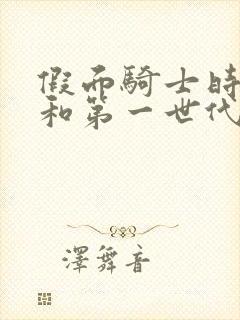 假面騎士時
和第一世代
澤舞音